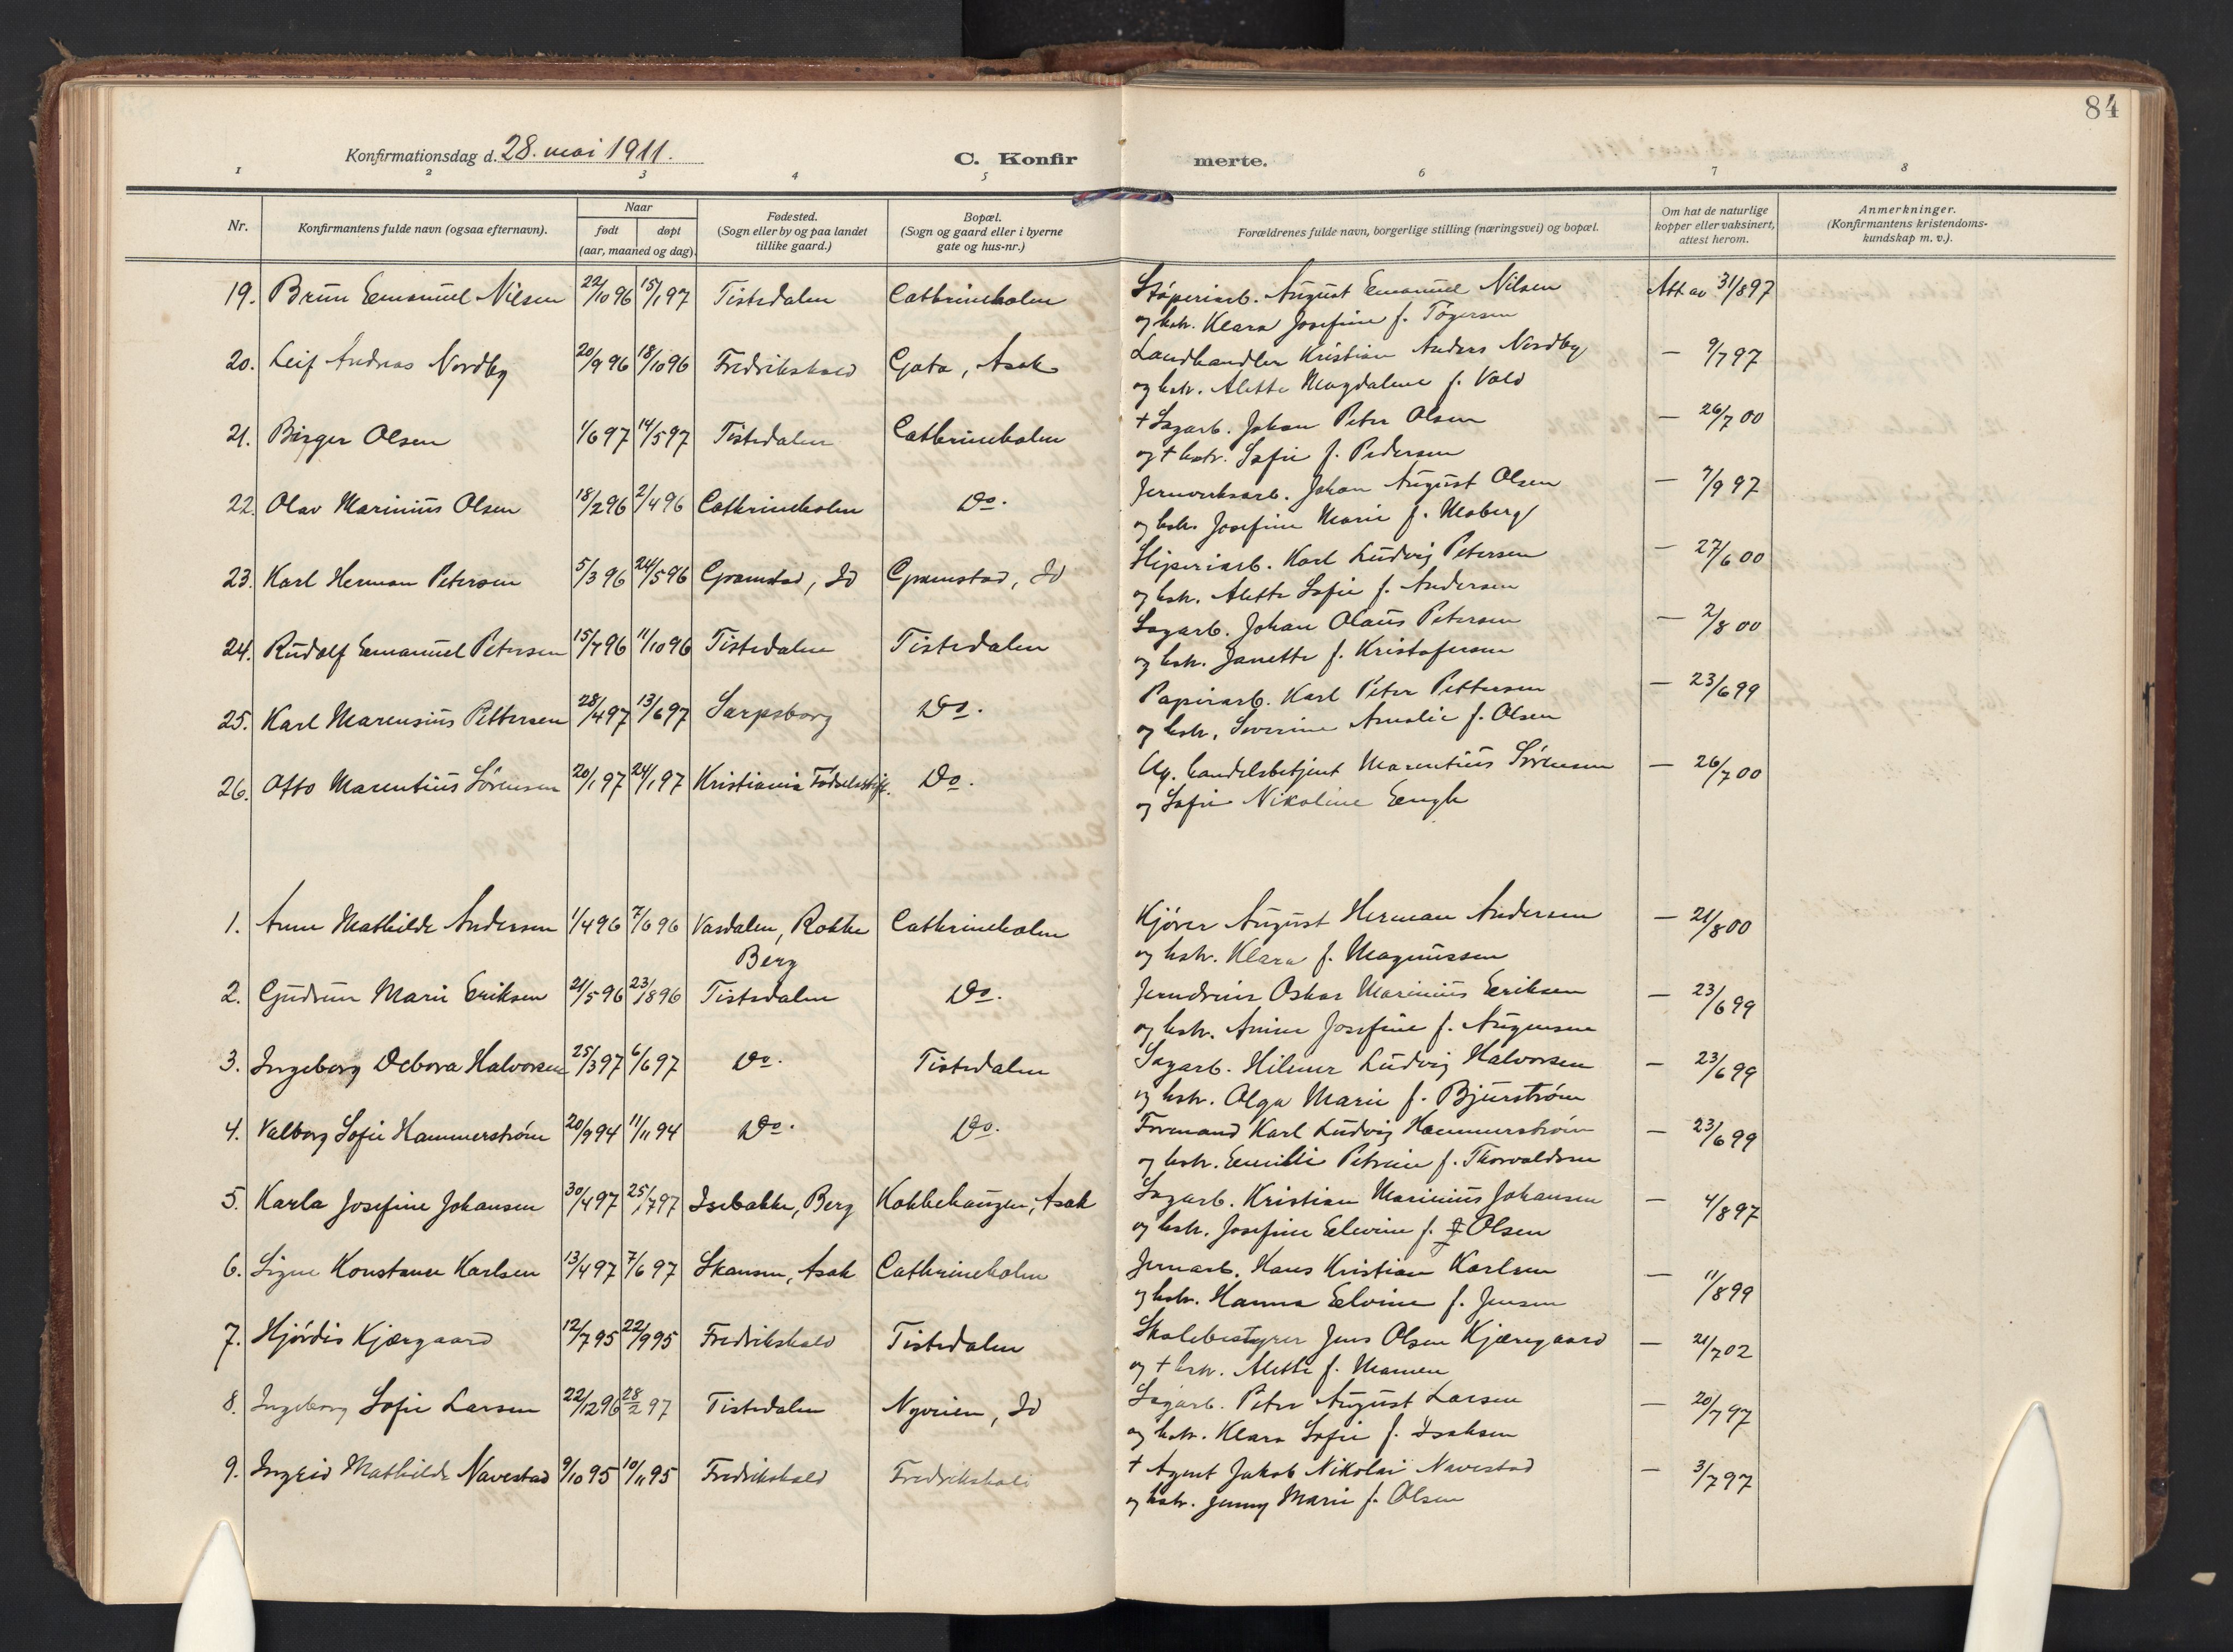 84
Konfirmationsdag d. 28. mai 1911.
C. Konfirmerte.
1 2 3 4 5 6 7 8
Nr.
Konfirmantens fulde navn (ogsaa efternavn).
Naar
født døpt
(aar, maaned og dag).
Fødested.
(Sogn eller by og paa landet
tillike gaard.)
Bopæl.
(Sogn og gaard eller i byerne
gate og hus-nr.)
Forældrenes fulde navn, borgerlige stilling (næringsvei) og bopæl.
Om hat de naturlige
kopper eller vaksinert,
attest herom.
Anmerkninger.
(Konfirmantens kristendoms-
kundskap m. v.).
19. Brun Emanuel Nilsen 22/10 96 15/1 97 Tistedalen Cathrineholm Støperiarb. August Emanuel Nilsen Att av 31/8 97
og hstr. Klara Josefine f. Tøgersen
20. Leif Andreas Nordby 20/9 96 18/10 96 Fredrikshald Gata, Asak Landhandler Kristian Anders Nordby — 9/7 97
og hstr. Alette Magdalene f. Vold
21. Birger Olsen 1/6 97 14/5 97 Tistedalen Cathrineholm + Sagarb. Johan Peter Olsen — 26/7 00
og + hstr. Sofie f. Pedersen
22. Olav Marinius Olsen 18/2 96 2/4 96 Cathrineholm Do. Jernverksarb. Johan August Olsen — 7/9 97
og hstr. Josefine Marie f. Moberg
23. Karl Herman Petersen 5/3 96 24/5 96 Gramstad, Id Gramstad, Id Sliperiarb. Karl Ludvig Petersen — 27/6 00
og hstr. Alette Sofie f. Andersen
24. Rudolf Emanuel Petersen 15/7 96 11/10 96 Tistedalen Tistedalen Sagarb. Johan Olaus Petersen — 2/8 00
og hstr. Janette f. Kristofersen
25. Karl Marensius Pettersen 28/4 97 13/6 97 Sarpsborg Do. Papirarb. Karl Peter Pettersen — 23/6 99
og hstr. Severine Amalie f. Olsen
26. Otto Marentius Sørensen 20/1 97 24/1 97 Kristiania Fødselsstift. Do. Ug. handelsbetjent Marentius Sørensen — 26/7 00
og Sofie Nikoline Eengh
1. Anne Mathilde Andersen 1/4 96 7/6 96 Vasdalen, Rokke Cathrineholm Kjører August Herman Andersen — 21/8 00
Berg og hstr. Klara f. Magnussen
2. Gudrun Marie Eriksen 21/5 96 23/8 96 Tistedalen Do. Jerndreier Oskar Marinius Eriksen — 23/6 99
og hstr. Anine Josefine f. Augensen
3. Ingeborg Debora Halvorsen 25/3 97 6/6 97 Do. Tistedalen Sagarb. Hilmer Ludvig Halvorsen — 23/6 99
og hstr. Olga Marie f. Bjurstrøm
4. Valborg Sofie Hammerstrøm 20/9 94 11/11 94 Do. Do. Formand Karl Ludvig Hammerstrøm — 23/6 99
og hstr. Emilie Petrine f. Thorvaldsen
5. Karla Josefine Johansen 30/4 97 25/7 97 Isebakke, Berg Kokkehaugen, Asak Sagarb. Kristian Marinius Johansen — 4/8 97
og hstr. Josefine Elevine f. Olsen
6. Signe Konstanse Karlsen 13/4 97 7/6 97 Skansen, Asak Cathrineholm Jernarb. Hans Kristian Karlsen — 11/8 99
og hstr. Hanna Elvine f. Jensen
7. Hjørdis Kjærgaard 12/7 95 22/9 95 Fredrikshald Tistedalen Skolebestyrer Jens Olsen Kjærgaard — 21/7 02
og + hstr. Alette f. Mamen
8. Ingeborg Sofie Larsen 22/12 96 28/2 97 Tistedalen Nyveien, Id Sagarb. Peter August Larsen — 20/7 97
og hstr. Klara Sofie f. Isaksen
9. Ingrid Mathilde Navestad 9/10 95 10/11 95 Fredrikshald Fredrikshald + Agent Jakob Nikolai Navestad — 3/7 97
og hstr. Jenny Marie f. Olsen